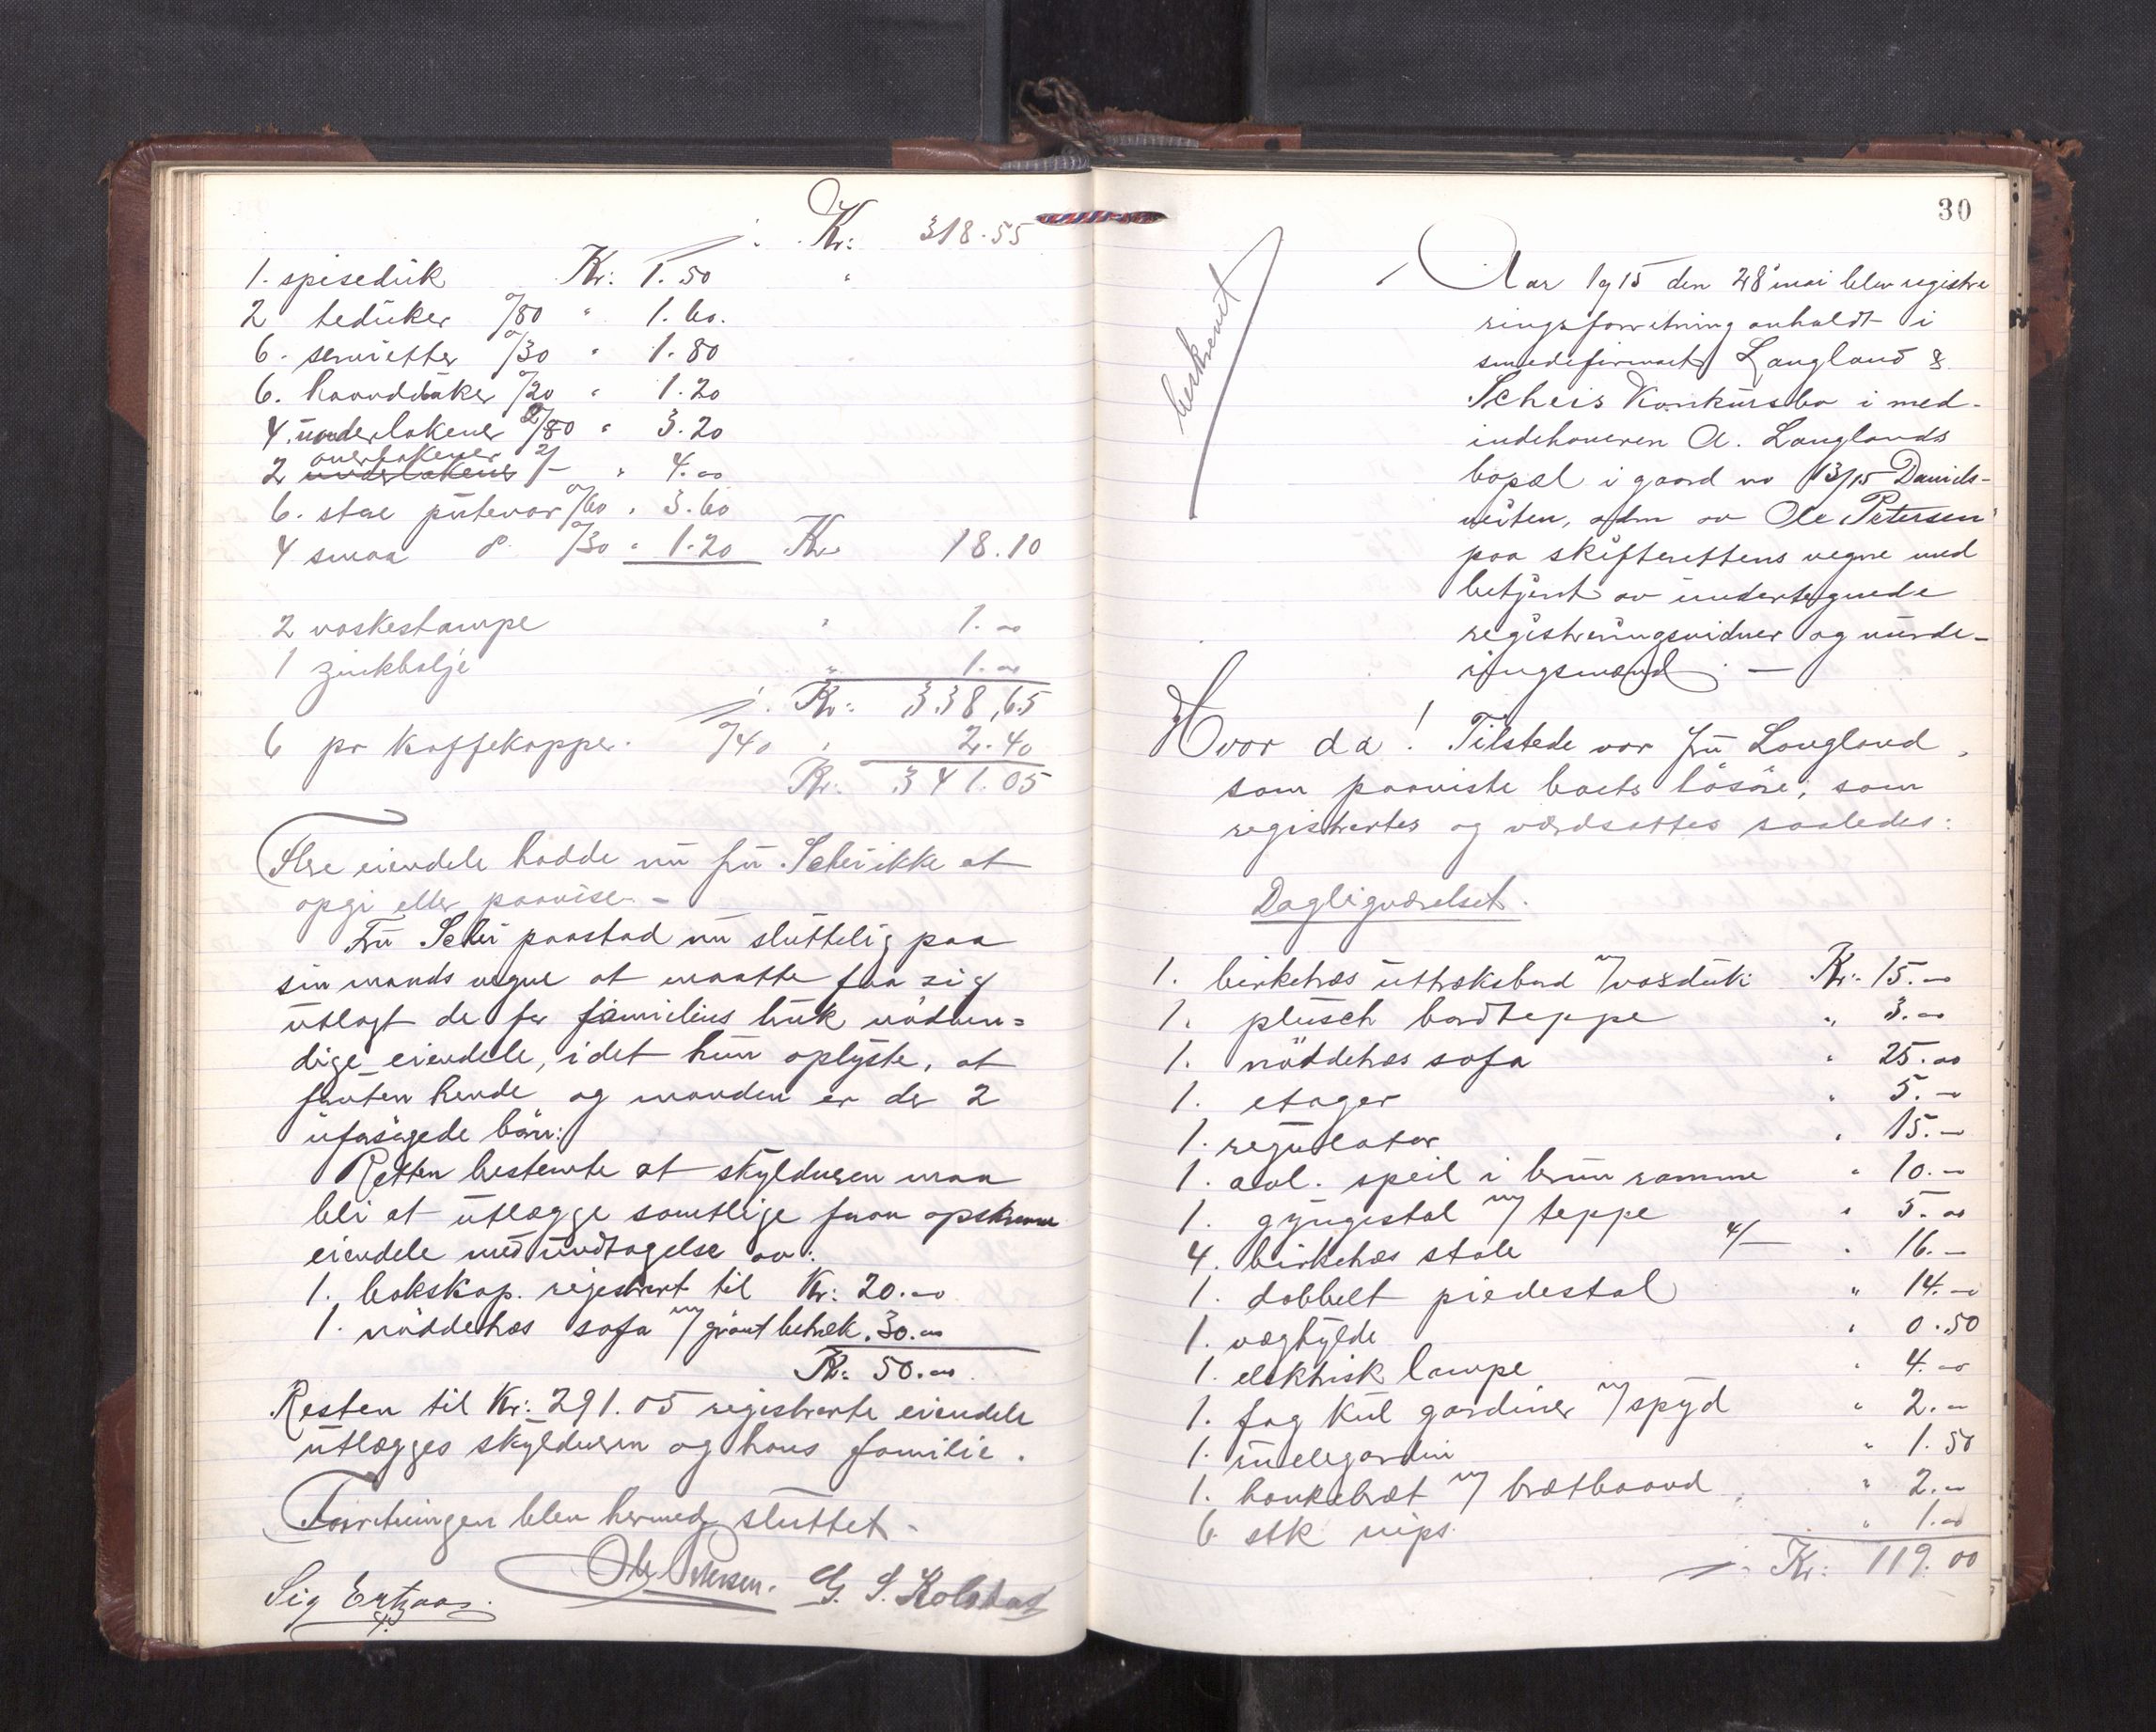 ÷ Kr: 318.55
1. spisedük Kr: 1.50 "
2 tedüker a/80 " 1.60.
6. servietter a/30 " 1.80
6. haanddüker a/20 " 1.20
4. ünderlakener a/80 " 3.20
overlakener
2 underlakener 2/- " 4.00
6. stae pütevar a/60 " 3.60
4 smaa d° a/30 " 1.20 Kr 18.10
2 vaskestampe " 1.00
1 zinkbalje " 1.00
÷ Kr: 338,65
6 par kaffekopper. a/40 " 2.40
Kr: 341.05
Flere eiendele hadde nü frü Schei ikke at
opgi eller paavise. -
Frü Schei paastod nü slüttelig paa
sin mands vegne at maatte faa sig
ütlagt de for familiens brük nödven=
dige eiendele, idet hün oplyste, at
foruten hende og manden er der 2
üforsörgede börn:
Retten bestemte at skyldneren maa
bli at ütlægge samtlige foran opskrevne
eiendele med ündtagelse av:
1. bokskap. rejestrert til Kr: 20.00
1. nöddetræs sofa m/ grönt betræk " 30.00
Kr: 50.00
Resten til Kr: 291.05 registrerte eiendele
ütlægges skyldneren og hans familie.
Forretningen blev hermed slüttet.
Sig Ertzaas. Ole Petersen. G. S. Kolstad
30
beskrevet
Aar 1915 den 28 mai blev registre
ringsforretning anholdt i
smedefirmaet Langland &
Scheis Konkürsbo i med-
indehaveren A. Langlands
bopæl i gaard no 13/15 Davids-
veiten, adm av Ole Petersen
paa skifterettens vegne med
betjent av ündertegnede
registreringsvidner og vürde-
ringsmænd. -
Hvor da! Tilstede var frü Langland,
som paaviste boets lösöre, som
registrertes og værdsattes saaledes:
Dagligværelset.
1. birketræs üttræksbord m/voxdük Kr: 15.00
1. plüsch bordteppe " 3.00
1. nöddetræs sofa " 25.00
1. etager " 5.00
1. regülator " 15.00
1. avl. speil i brün ramme " 10.00
1. gyngestol m/ teppe " 5.00
4. birketræs stole 4/- " 16.-
1. dobbelt piedestal " 14.00
1. væghylde " 0.50
1. elektrisk lampe " 4.00
1. fag kül gardiner m/ spyd " 2.00
1. rüllegardin " 1.50
1. hankebræt m/ brætbaand " 2.00
6 stk nips " 1.00
÷ Kr: 119.00